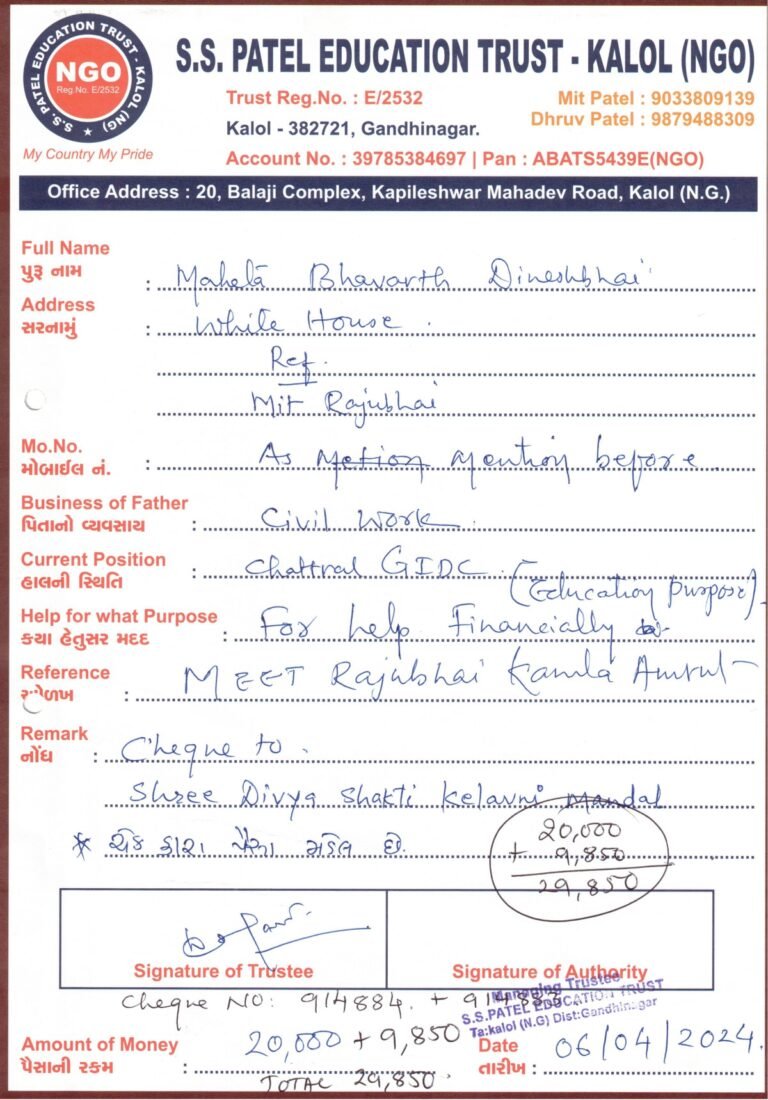 S.S. PATEL EDUCATION TRUST - KALOL (NG)
NGO
Reg.No. E/2532
My Country My Pride
S.S. PATEL EDUCATION TRUST - KALOL (NGO)
Trust Reg.No. : E/2532
Mit Patel : 9033809139
Kalol - 382721, Gandhinagar.
Dhruv Patel : 9879488309
Account No. : 39785384697 | Pan : ABATS5439E(NGO)
Office Address : 20, Balaji Complex, Kapileshwar Mahadev Road, Kalol (N.G.)
Full Name
પુરૂ નામ : Mahetā Bhavarth Dineshbhai
Address
સરનામું : White House .
Ref.
Mit Rajubhai
Mo.No.
મોબાઈલ નં. : As metion mention before
Business of Father
પિતાનો વ્યવસાય : Civil Work
Current Position
હાલની સ્થિતિ : Chattral GIDC
(Education purpose)
Help for what Purpose
કયા હેતુસર મદદ : For help Financially
Reference
ઓળખ : MEET Rajubhai Kamla Amrut
Remark
નોંધ : Cheque to .
Shree Divya Shakti Kelavni Mandal
* ચેક દ્વારા પૈસા મળેલ છે.
20,000
+ 9,850
29,850
Signature of Trustee
Signature of Authority
Managing Trustee
S.S.PATEL EDUCATION TRUST
Ta:kalol (N.G) Dist:Gandhinagar
Cheque NO: 914884. + 914883
Amount of Money
પૈસાની રકમ : 20,000 + 9,850
TOTAL 29,850.
Date
તારીખ : 06/04/2024.